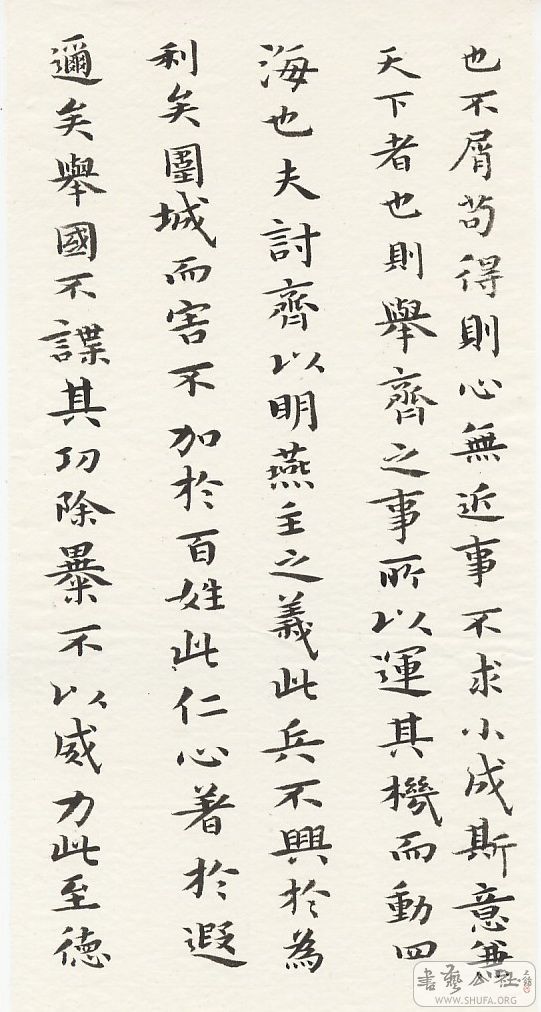 也不屑苟得則心無近事不求小成斯意兼
天下者也則舉齊之事所以運其機而動四
海也夫討齊以明燕主之義此兵不興於為
利矣圍城而害不加於百姓此仁心著於遐
邇矣舉國不謀其功除暴不以威力此至德
書藝公社
WWW.SHUFA.ORG